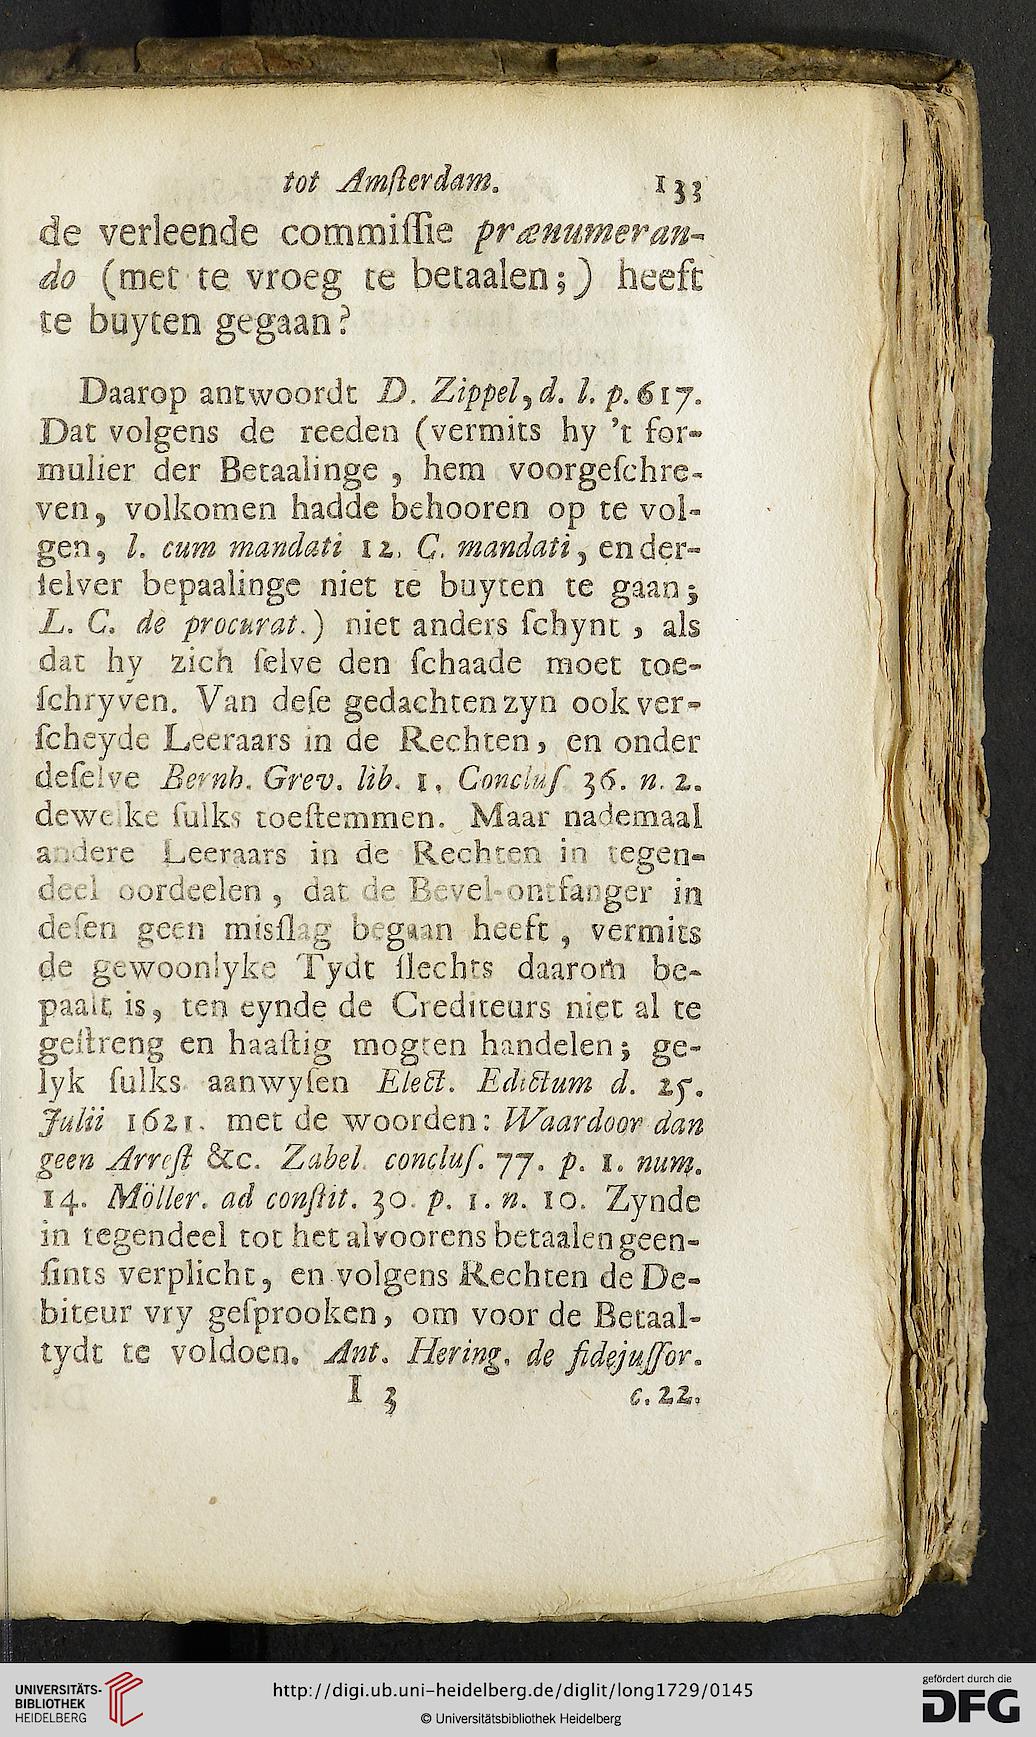 tot Amſterdam. 133
de verleende commiſſie prænumeran-
do (met te vroeg te betaalen;) heeft
te buyten gegaan?
Daarop antwoordt D. Zippel, d. l. p. 617.
Dat volgens de reeden (vermits hy 't for-
mulier der Betaalinge , hem voorgeſchre-
ven, volkomen hadde behooren op te vol-
gen, l. cum mandati 12. C. mandati, en der-
ſelver bepaalinge niet te buyten te gaan;
L. C. de procurat.) niet anders ſchynt , als
dat hy zich ſelve den ſchaade moet toe-
ſchryven. Van deſe gedachten zyn ook ver-
ſcheyde Leeraars in de Rechten, en onder
deſelve Bernh. Grev. lib. 1. Concluſ. 36. n. 2.
dewelke ſulks toeſtemmen. Maar nademaal
andere Leeraars in de Rechten in tegen-
deel oordeelen , dat de Bevel-ontfanger in
deſen geen misſlag begaan heeft , vermits
de gewoonlyke Tydt ſlechts daarom be-
paalt is, ten eynde de Crediteurs niet al te
geſtreng en haaſtig mogten handelen; ge-
lyk ſulks aanwyſen Elect. Edictum d. 25.
Julii 1621. met de woorden: Waardoor dan
geen Arreſt &c. Zabel. concluſ. 77. p. 1. num.
14. Möller. ad conſtit. 30. p. 1. n. 10. Zynde
in tegendeel tot het alvoorens betaalen geen-
ſints verplicht, en volgens Rechten de De-
biteur vry geſprooken, om voor de Betaal-
tydt te voldoen. Ant. Hering. de fidejuſſor.
I 3 c. 22.
UNIVERSITÄTS-
BIBLIOTHEK
HEIDELBERG
http://digi.ub.uni-heidelberg.de/diglit/long1729/0145
© Universitätsbibliothek Heidelberg
gefördert durch die
DFG